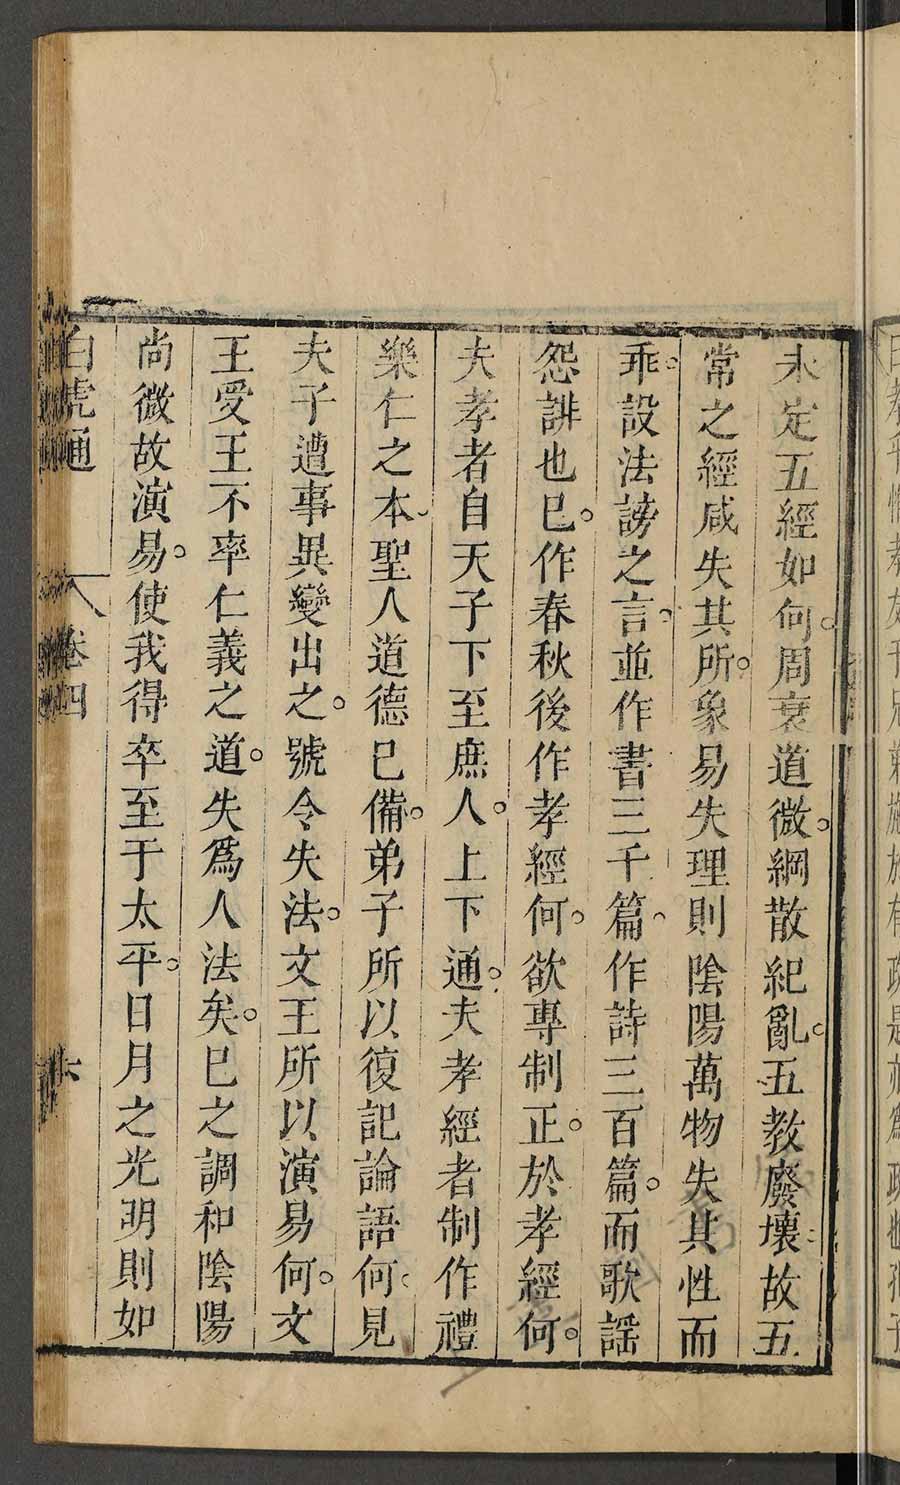 未定五經如何周衰道微綱散紀亂五教廢壞故五
常之經咸失其所象易失理則陰陽萬物失其性而
乖設法謗之言並作書三千篇作詩三百篇而歌謡
怨誹也已作春秋後作孝經何欲專制正於孝經何
夫孝者自天子下至庶人上下通夫孝經者制作禮
樂仁之本聖人道德已備弟子所以復記論語何見
夫子遭事異變出之號令失法文王所以演易何文
王受王不率仁義之道失爲人法矣已之調和陰陽
尚微故演易使我得卒至于太平日月之光明則如
白虎通
卷四
六